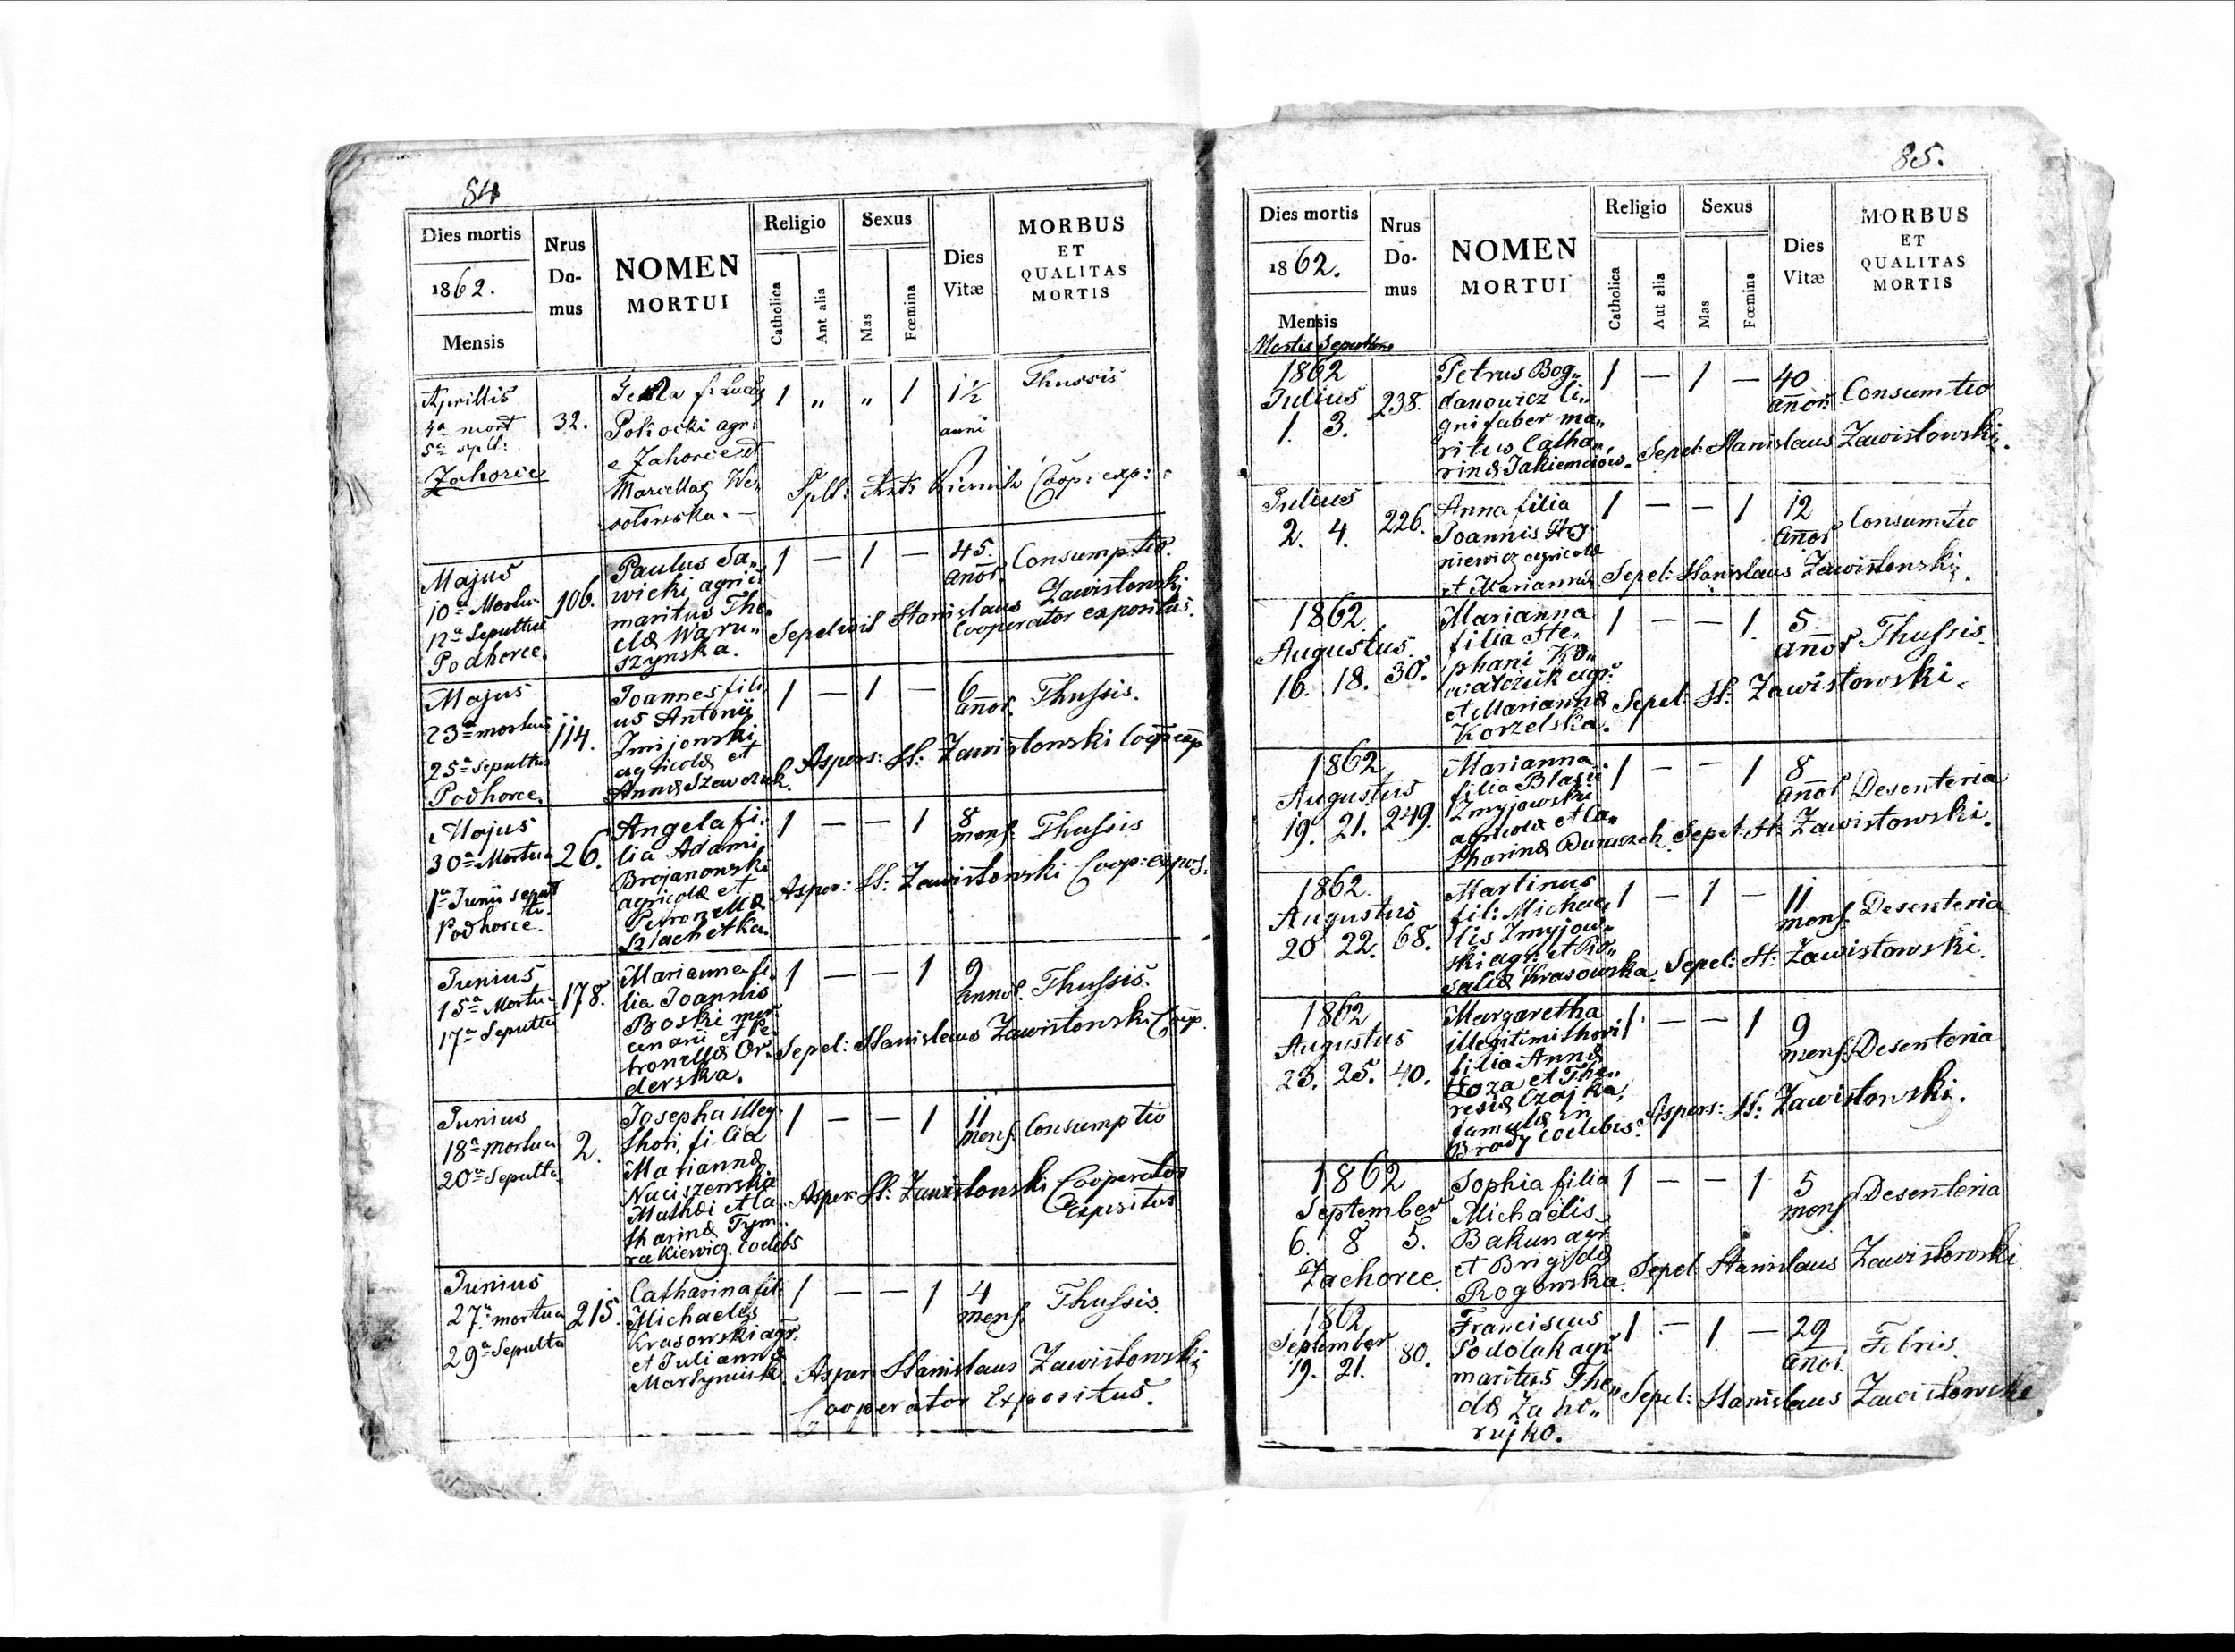 84
Dies mortis
1862.
Mensis
Nrus
Do-
mus
NOMEN
MORTUI
Religio
Catholica
Ant alia
Sexus
Mas
Fœmina
Dies
Vitæ
MORBUS
ET
QUALITAS
MORTIS
Aprillis
4ª mort
5ª splt:
Zahorce
32.
Pokocki agr:
e Zahorce et
Mariellæ We„
sołowska. —
1 „ „ 1 1½
anni
Thussis
Splt: Ant: Coop: exp:
Majus
10ª Mortu
12ª Sepultus
Podhorce.
106.
Paulus Sa„
wicki agric
maritus The„
clæ Waru„
szynska.
1 — 1 — 45.
anor.
Consumptio.
Sepelivit Stanislaus Zawistowski
Cooperator expositus.
Majus
23ª mortuus
25ª Sepultus
Podhorce.
114.
Joannes fili
us Antonii
Zmijowski
agricolæ et
Annæ Szewczuk.
1 — 1 — 6
anor.
Thussis.
Aspers: St: Zawistowski Coop: exp
Majus
30ª Mortua
1ª Junii sepul
ta.
Podhorce.
26.
Angela fi„
lia Adami
Brojanowski
agricolæ et
Petronellæ
Szlachetka.
1 — — 1 8
mens.
Thussis
Asper: St: Zawistowski Coop: expos:
Junius
15ª Mortua
17ª Sepulta
178.
Marianna fi„
lia Joannis
Boski mer
cenarii et Pe„
tronellæ Or„
derska.
1 — — 1 9
annor.
Thussis.
Sepel: Stanislaus Zawistowski Coop.
Junius
18ª mortua
20ª Sepulta
2.
Josepha illeg.
thori, filia
Mariannæ
Naciszewska
Mathæi et Ca„
tharinæ Tym„
rakiewicz. coelebs
1 — — 1 11
mens.
Consumptio
Asper: St: Zawistowski Cooperator
Expositus
Junius
27ª mortua
29ª Sepulta
215.
Catharina fil:
Michaelis
Krasowski agr.
et Juliannæ
Martyniuk.
1 — — 1 4
mens.
Thussis.
Asper: Stanislaus Zawistowski
Cooperator Expositus.
85.
Dies mortis
1862.
Mensis
Mortis Sepulturæ
Nrus
Do-
mus
NOMEN
MORTUI
Religio
Catholica
Aut alia
Sexus
Mas
Fœmina
Dies
Vitæ
MORBUS
ET
QUALITAS
MORTIS
1862
Julius
1. 3.
238.
Petrus Bog„
danowicz li„
gni faber ma„
ritus Catha„
rinæ Jakiemców.
1 — 1 — 40
anor.
Consumtio
Sepel: Stanislaus Zawistowski.
Julius
2. 4.
226.
Anna filia
Joannis
niewicz agricolæ
et Mariannæ
1 — — 1 12
anor
Consumtio
Sepel: Stanislaus Zawistowski.
1862.
Augustus.
16. 18. 30.
Marianna
filia Ste„
phani Ko„
walczuk agr.
et Mariannæ
Korzelska.
1 — — 1. 5.
anor
Thussis.
Sepel: St: Zawistowski.
1862
Augustus
19. 21. 249.
Marianna
filia Blasii
Zmyjowski
agricolæ et Ca„
tharinæ
1 — — 1 8
anor
Desenteria
Sepel: St: Zawistowski.
1862.
Augustus
20 22. 68.
Martinus
fil: Michae„
lis Zmyjow„
ski agr: et Ro„
saliæ Krasowska.
1 — 1 — 11
mens.
Desenteria
Sepel: St: Zawistowski.
1862
Augustus
23. 25. 40.
Margaretha
illegitimi thori
filia Annæ
Łoza et The„
resiæ Czajka,
famulæ in
Brody coelibis.
1 — — 1 9
mens.
Desenteria
Aspers: St: Zawistowski.
1862
September
6. 8 5.
Zachorce
Sophia filia
Michaelis
Bakun agr
et Brigidæ
Rogowska.
1 — — 1 5
mens
Desenteria
Sepel: Stanislaus Zawistowski.
1862
September
19. 21. 80.
Franciscus
Podolak agr
maritus The„
clæ Zaho„
rujko.
1 — 1 — 29
anor.
Febris.
Sepel: Stanislaus Zawistowski